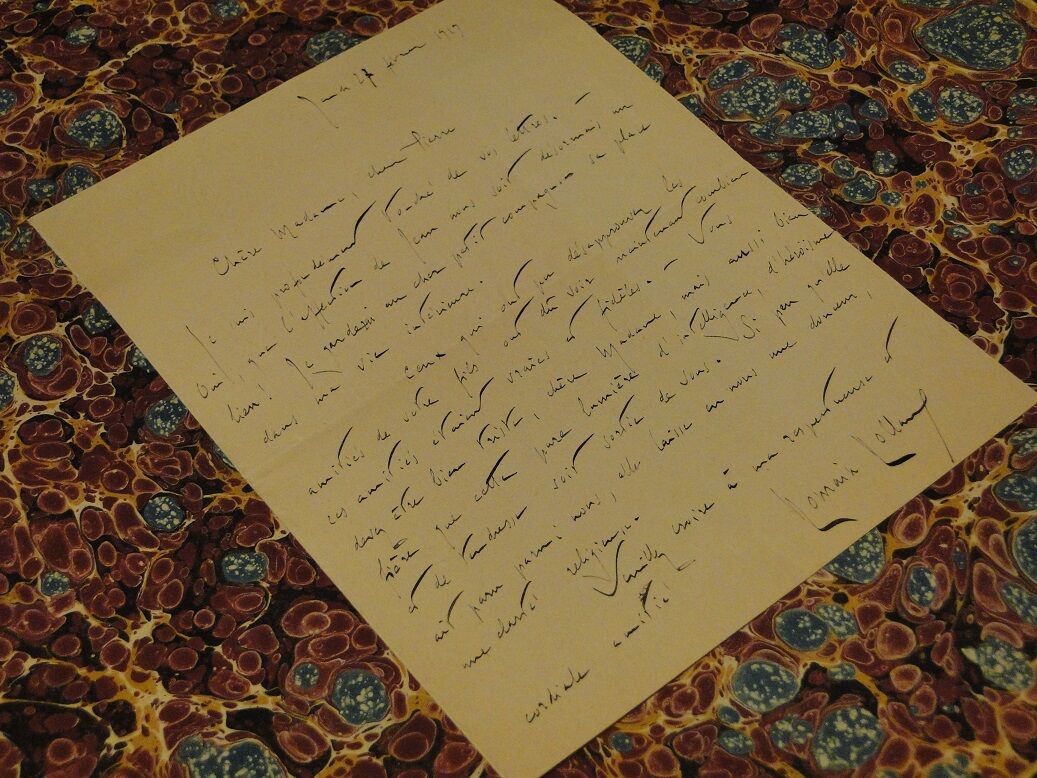 27 1919
Chère Madame, cher Pierre
Je suis profondément touché de vos lettres.
Oui, que l'affection de Jean nous soit désormais un
lien! Je garderai au cher petit compagnon sa place
dans ma vie intérieure.
Ceux qui ont pu désapprouver les
amitiés de votre fils ont dû voir maintenant combien
ces amitiés étaient vraies et fidèles. - Vous
devez être bien triste, chère Madame, mais aussi bien
fière que cette pure lumière d'intelligence, d'héroïsme
et de tendresse soit sortie de vous. Si peu qu'elle
ait paru parmi nous, elle laisse en nous une douceur,
une clarté religieuse.
Veuillez croire à ma respectueuse et
cordiale amitié
Romain Rolland